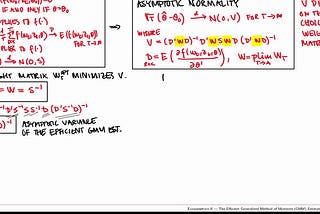 IF AND ONLY IF θ=θ₀
PLIES TO f(·)
FOR T→∞
PLIES TO f(·)
ASYMPTOTIC NORMALITY
√T (θ̂-θ₀) →d N(0,V) FOR T→∞
WHERE
V = (D'WD)⁻¹ D'WSWD (D'WD)⁻¹
D = E(∂f(wt,zt,θ₀)/∂θ'), W = plim WT
T→∞
V DE
ON THE
CHOIC
WEIG
MATR
GHT MATRIX WT^OPT MINIMIZES V.
= W = S⁻¹
D)⁻¹ ASYMPTOTIC VARIANCE
OF THE EFFICIENT GMM EST.
Econometrics II — The Efficient Generalized Method of Moments (GMM) Estimator